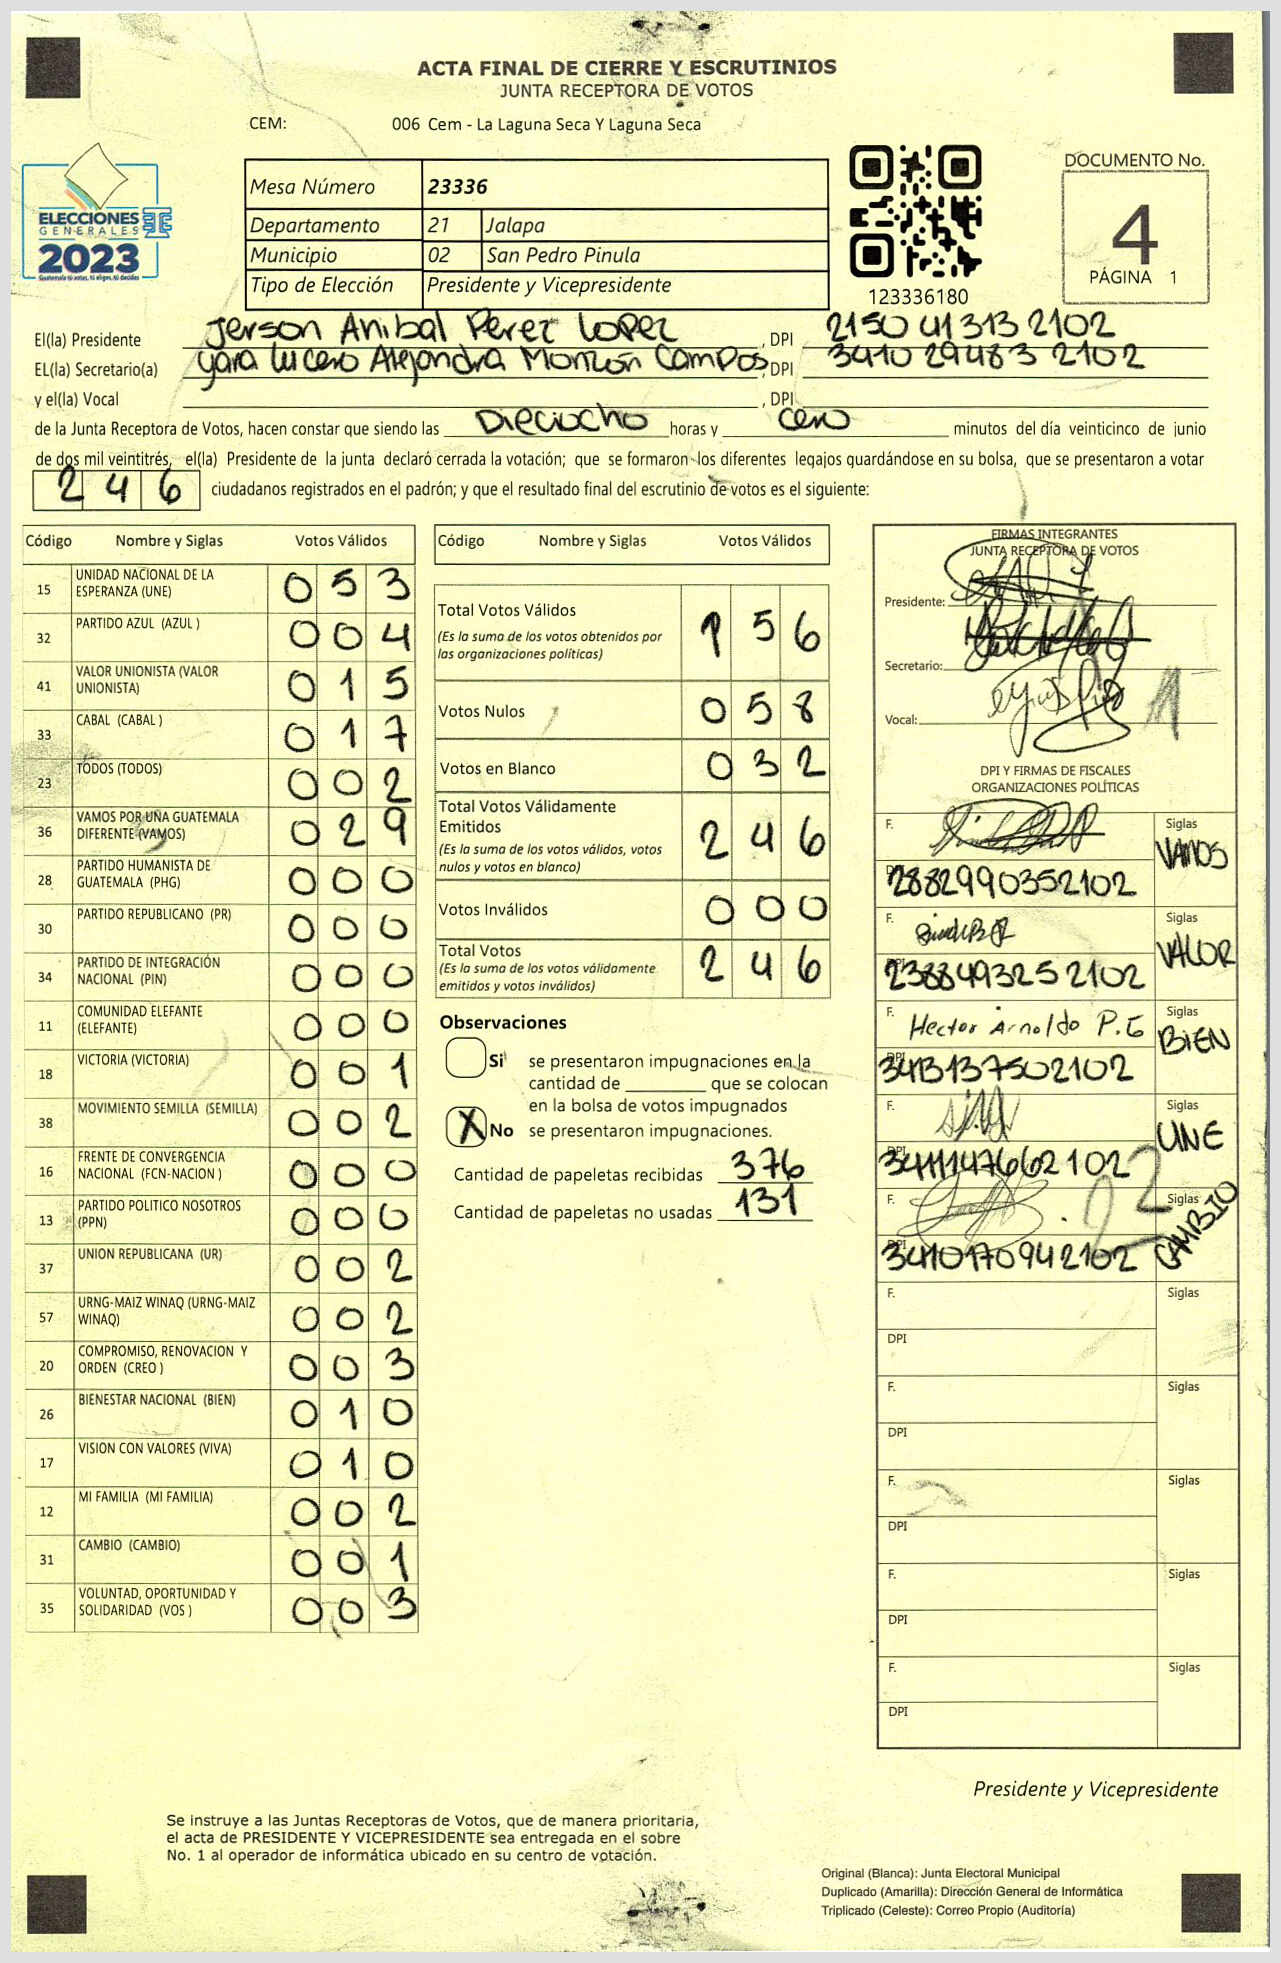 ACTA FINAL DE CIERRE Y ESCRUTINIOS
JUNTA RECEPTORA DE VOTOS
CEM: 006 Cem - La Laguna Seca Y Laguna Seca
ELECCIONES
GENERALES
2023
Mesa Número 23336
Departamento 21 Jalapa
Municipio 02 San Pedro Pinula
Tipo de Elección Presidente y Vicepresidente
123336180
DOCUMENTO No.
4
PÁGINA 1
El(la) Presidente Jerson Anibal Perez Lopez , DPI 2150 41313 2102
EL(la) Secretario(a) Yara Lucero Alejandra Monzón Campos , DPI 3410 29483 2102
y el(la) Vocal , DPI
de la Junta Receptora de Votos, hacen constar que siendo las Dieciocho horas y cero minutos del día veinticinco de junio
de dos mil veintitrés, el(la) Presidente de la junta declaró cerrada la votación; que se formaron los diferentes legajos guardándose en su bolsa, que se presentaron a votar
246 ciudadanos registrados en el padrón; y que el resultado final del escrutinio de votos es el siguiente:
Código Nombre y Siglas Votos Válidos
15 UNIDAD NACIONAL DE LA ESPERANZA (UNE) 053
32 PARTIDO AZUL (AZUL ) 004
41 VALOR UNIONISTA (VALOR UNIONISTA) 015
33 CABAL (CABAL ) 017
23 TODOS (TODOS) 002
36 VAMOS POR UNA GUATEMALA DIFERENTE (VAMOS) 029
28 PARTIDO HUMANISTA DE GUATEMALA (PHG) 000
30 PARTIDO REPUBLICANO (PR) 000
34 PARTIDO DE INTEGRACIÓN NACIONAL (PIN) 000
11 COMUNIDAD ELEFANTE (ELEFANTE) 000
18 VICTORIA (VICTORIA) 001
38 MOVIMIENTO SEMILLA (SEMILLA) 002
16 FRENTE DE CONVERGENCIA NACIONAL (FCN-NACION ) 000
13 PARTIDO POLITICO NOSOTROS (PPN) 000
37 UNION REPUBLICANA (UR) 002
57 URNG-MAIZ WINAQ (URNG-MAIZ WINAQ) 002
20 COMPROMISO, RENOVACION Y ORDEN (CREO ) 003
26 BIENESTAR NACIONAL (BIEN) 010
17 VISION CON VALORES (VIVA) 010
12 MI FAMILIA (MI FAMILIA) 002
31 CAMBIO (CAMBIO) 001
35 VOLUNTAD, OPORTUNIDAD Y SOLIDARIDAD (VOS ) 003
Código Nombre y Siglas Votos Válidos
Total Votos Válidos 156
(Es la suma de los votos obtenidos por
las organizaciones políticas)
Votos Nulos 058
Votos en Blanco 032
Total Votos Válidamente
Emitidos 246
(Es la suma de los votos válidos, votos
nulos y votos en blanco)
Votos Inválidos 000
Total Votos 246
(Es la suma de los votos válidamente
emitidos y votos inválidos)
Observaciones
Si se presentaron impugnaciones en la
cantidad de ________ que se colocan
en la bolsa de votos impugnados
X No se presentaron impugnaciones.
Cantidad de papeletas recibidas 376
Cantidad de papeletas no usadas 131
FIRMAS INTEGRANTES
JUNTA RECEPTORA DE VOTOS
Presidente:
Secretario:
Vocal:
11
DPI Y FIRMAS DE FISCALES
ORGANIZACIONES POLÍTICAS
F. Siglas VAMOS
2882990352102
F. Siglas VALOR
DPI 2388493252102
F. Hector Arnoldo P.G Siglas BIEN
DPI 3413137502102
F. Siglas UNE
DPI 3411147662102
F. Siglas CAMBIO
DPI 3410170942102
22
F. Siglas
DPI
F. Siglas
DPI
F. Siglas
DPI
F. Siglas
DPI
F. Siglas
DPI
Presidente y Vicepresidente
Se instruye a las Juntas Receptoras de Votos, que de manera prioritaria,
el acta de PRESIDENTE Y VICEPRESIDENTE sea entregada en el sobre
No. 1 al operador de informática ubicado en su centro de votación.
Original (Blanca): Junta Electoral Municipal
Duplicado (Amarilla): Dirección General de Informática
Triplicado (Celeste): Correo Propio (Auditoría)